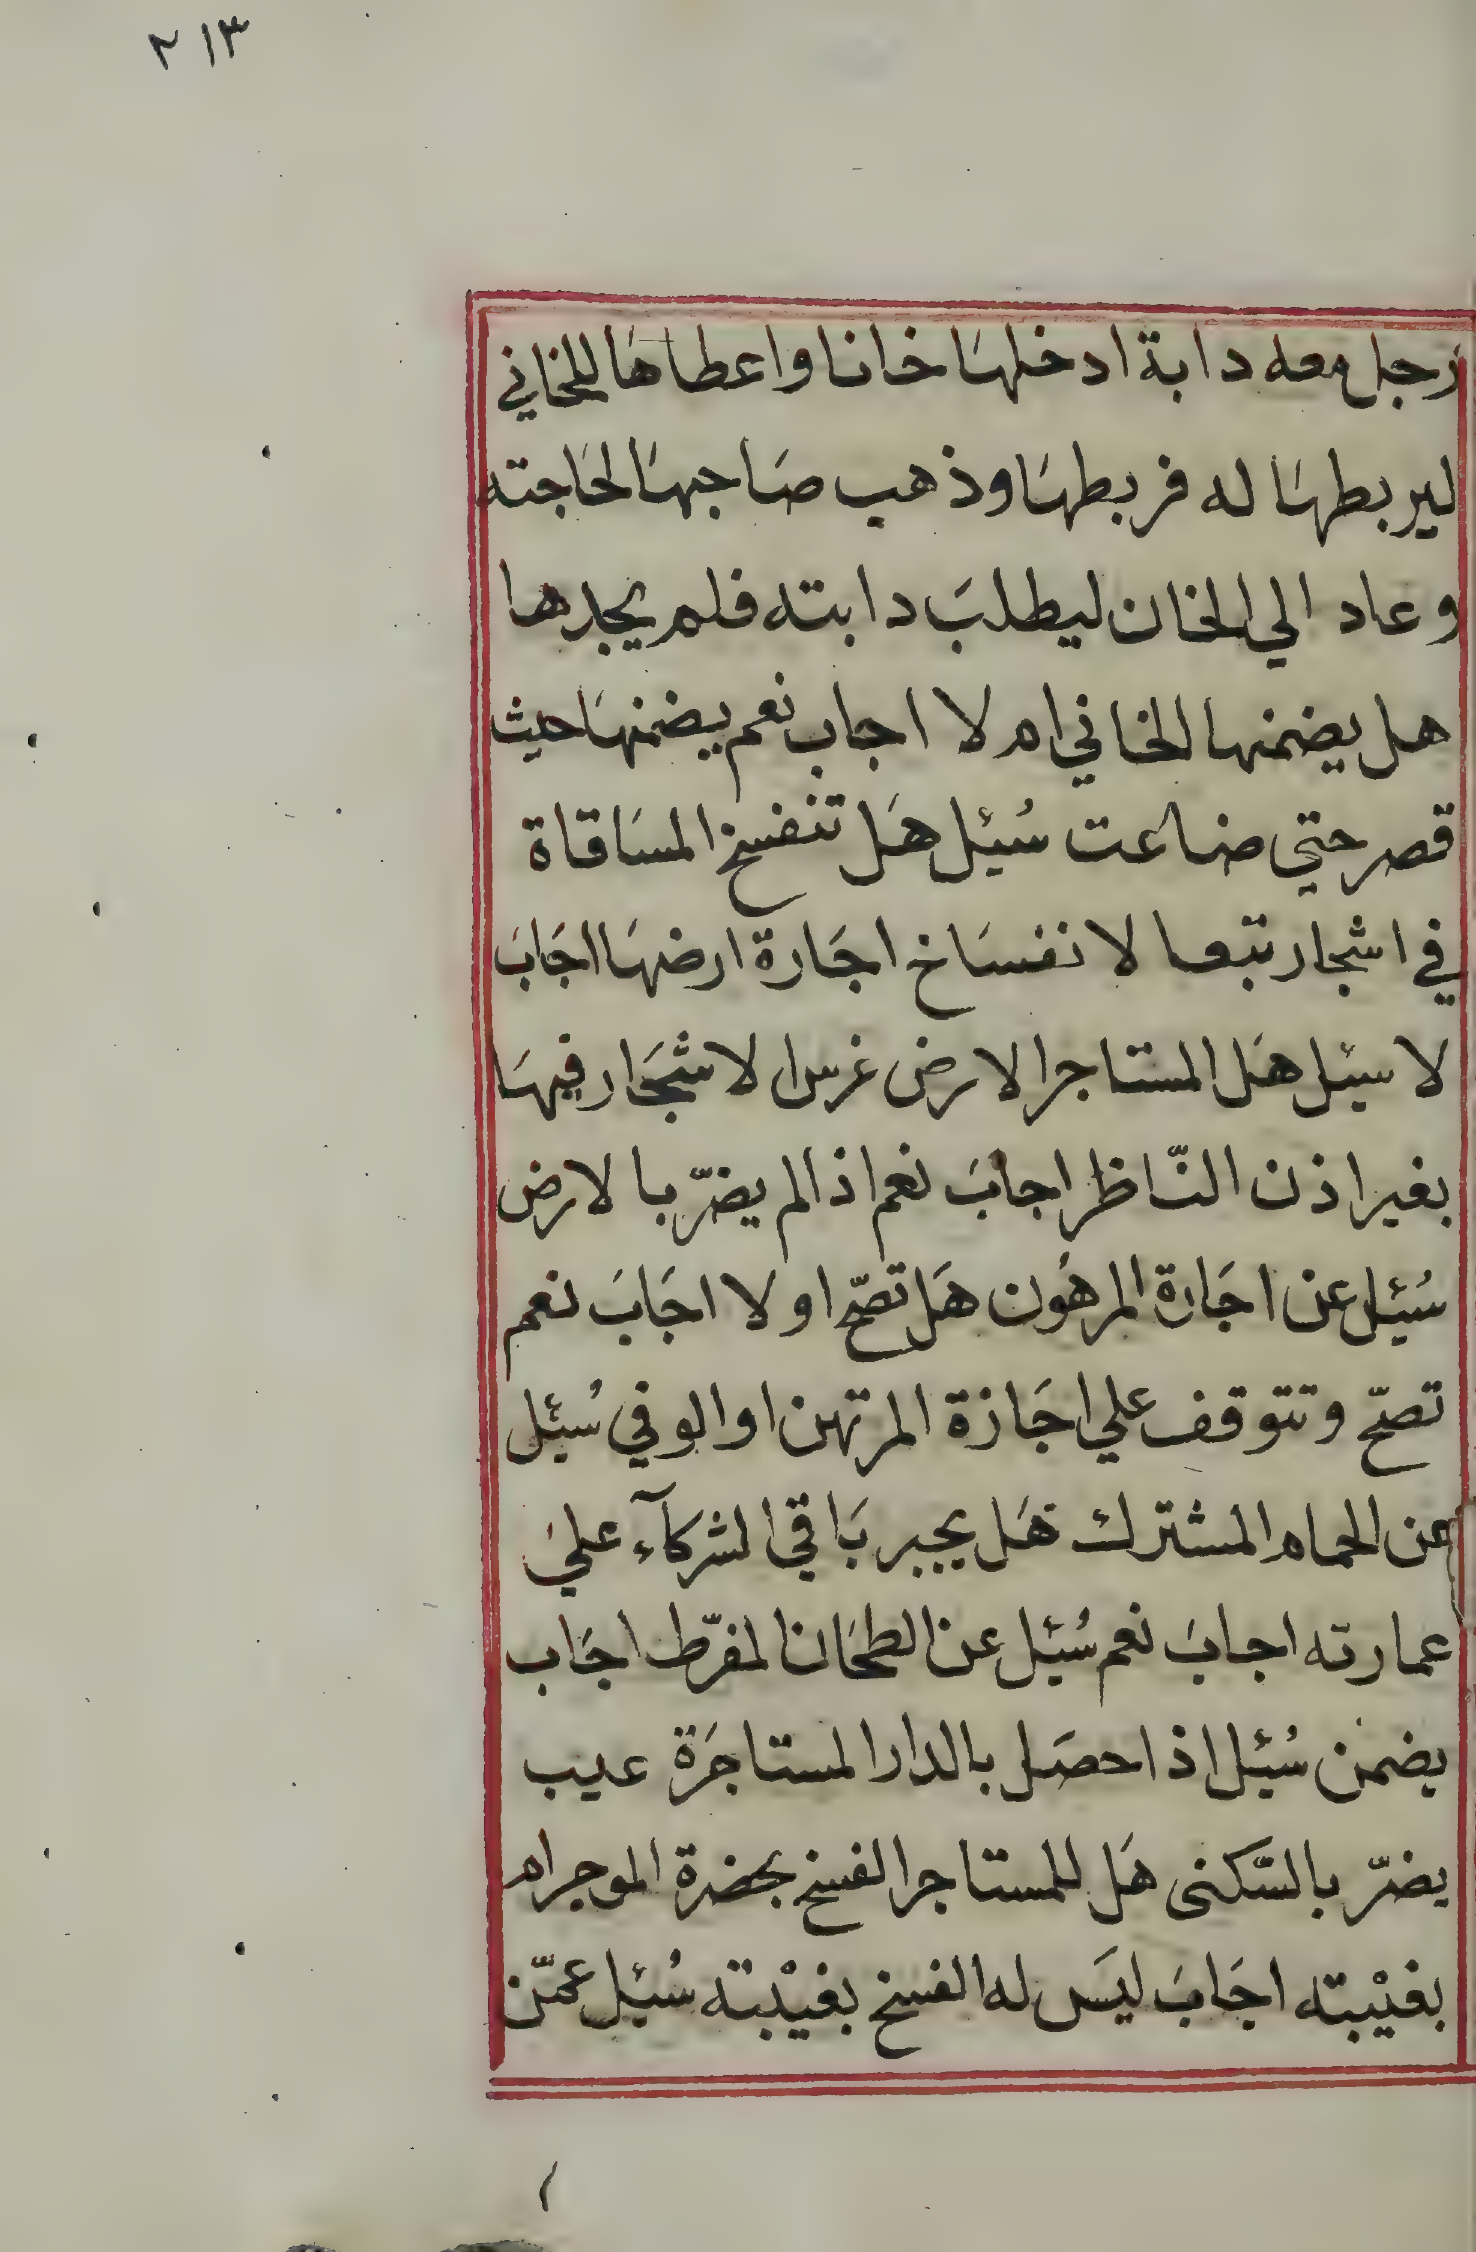 ٢١٣
رجل معه دابة ادخلهَا خانا واعطاهَا للخاني
ليربطهَا له فربطهَا وذهب صَاحبهَا لحَاجته
وعاد الي الخان ليطلبَ دابته فلم يجدها
هل يضمنها الخاني ام لا اجاب نعم يضمنهَا حيث
قصر حتي ضاعت سُئِل هَل تنفسخ المسَاقاة
في اشجار تبعا لانفسَاخ اجَارة ارضهَا اجَابَ
لا سئِل هَل المستاجر الارض غرس الاشجَار فيهَا
بغير اذن النّاظر اجابَ نعم اذا لم يضرّ بالارض
سُئِل عن اجَارة المرهُون هَل تصحّ اولا اجَابَ نعم
تصحّ وتتوقف علي اجَازة المرتهن او الوفي سُئِل
عن الحمام المشترك هَل يجبر بَاقي الشركآء علي
عمارته اجابَ نعم سُئِل عن الطحَان المفرّط اجَاب
يضمن سُئِل اذا حصَل بالدار المستاجَرة عيب
يضرّ بالسّكنى هَل للمستاجر الفسخ بحضرة الموجر ام
بغيْبته اجَابَ ليَس له الفسخ بغيْبته سُئِل عمّن